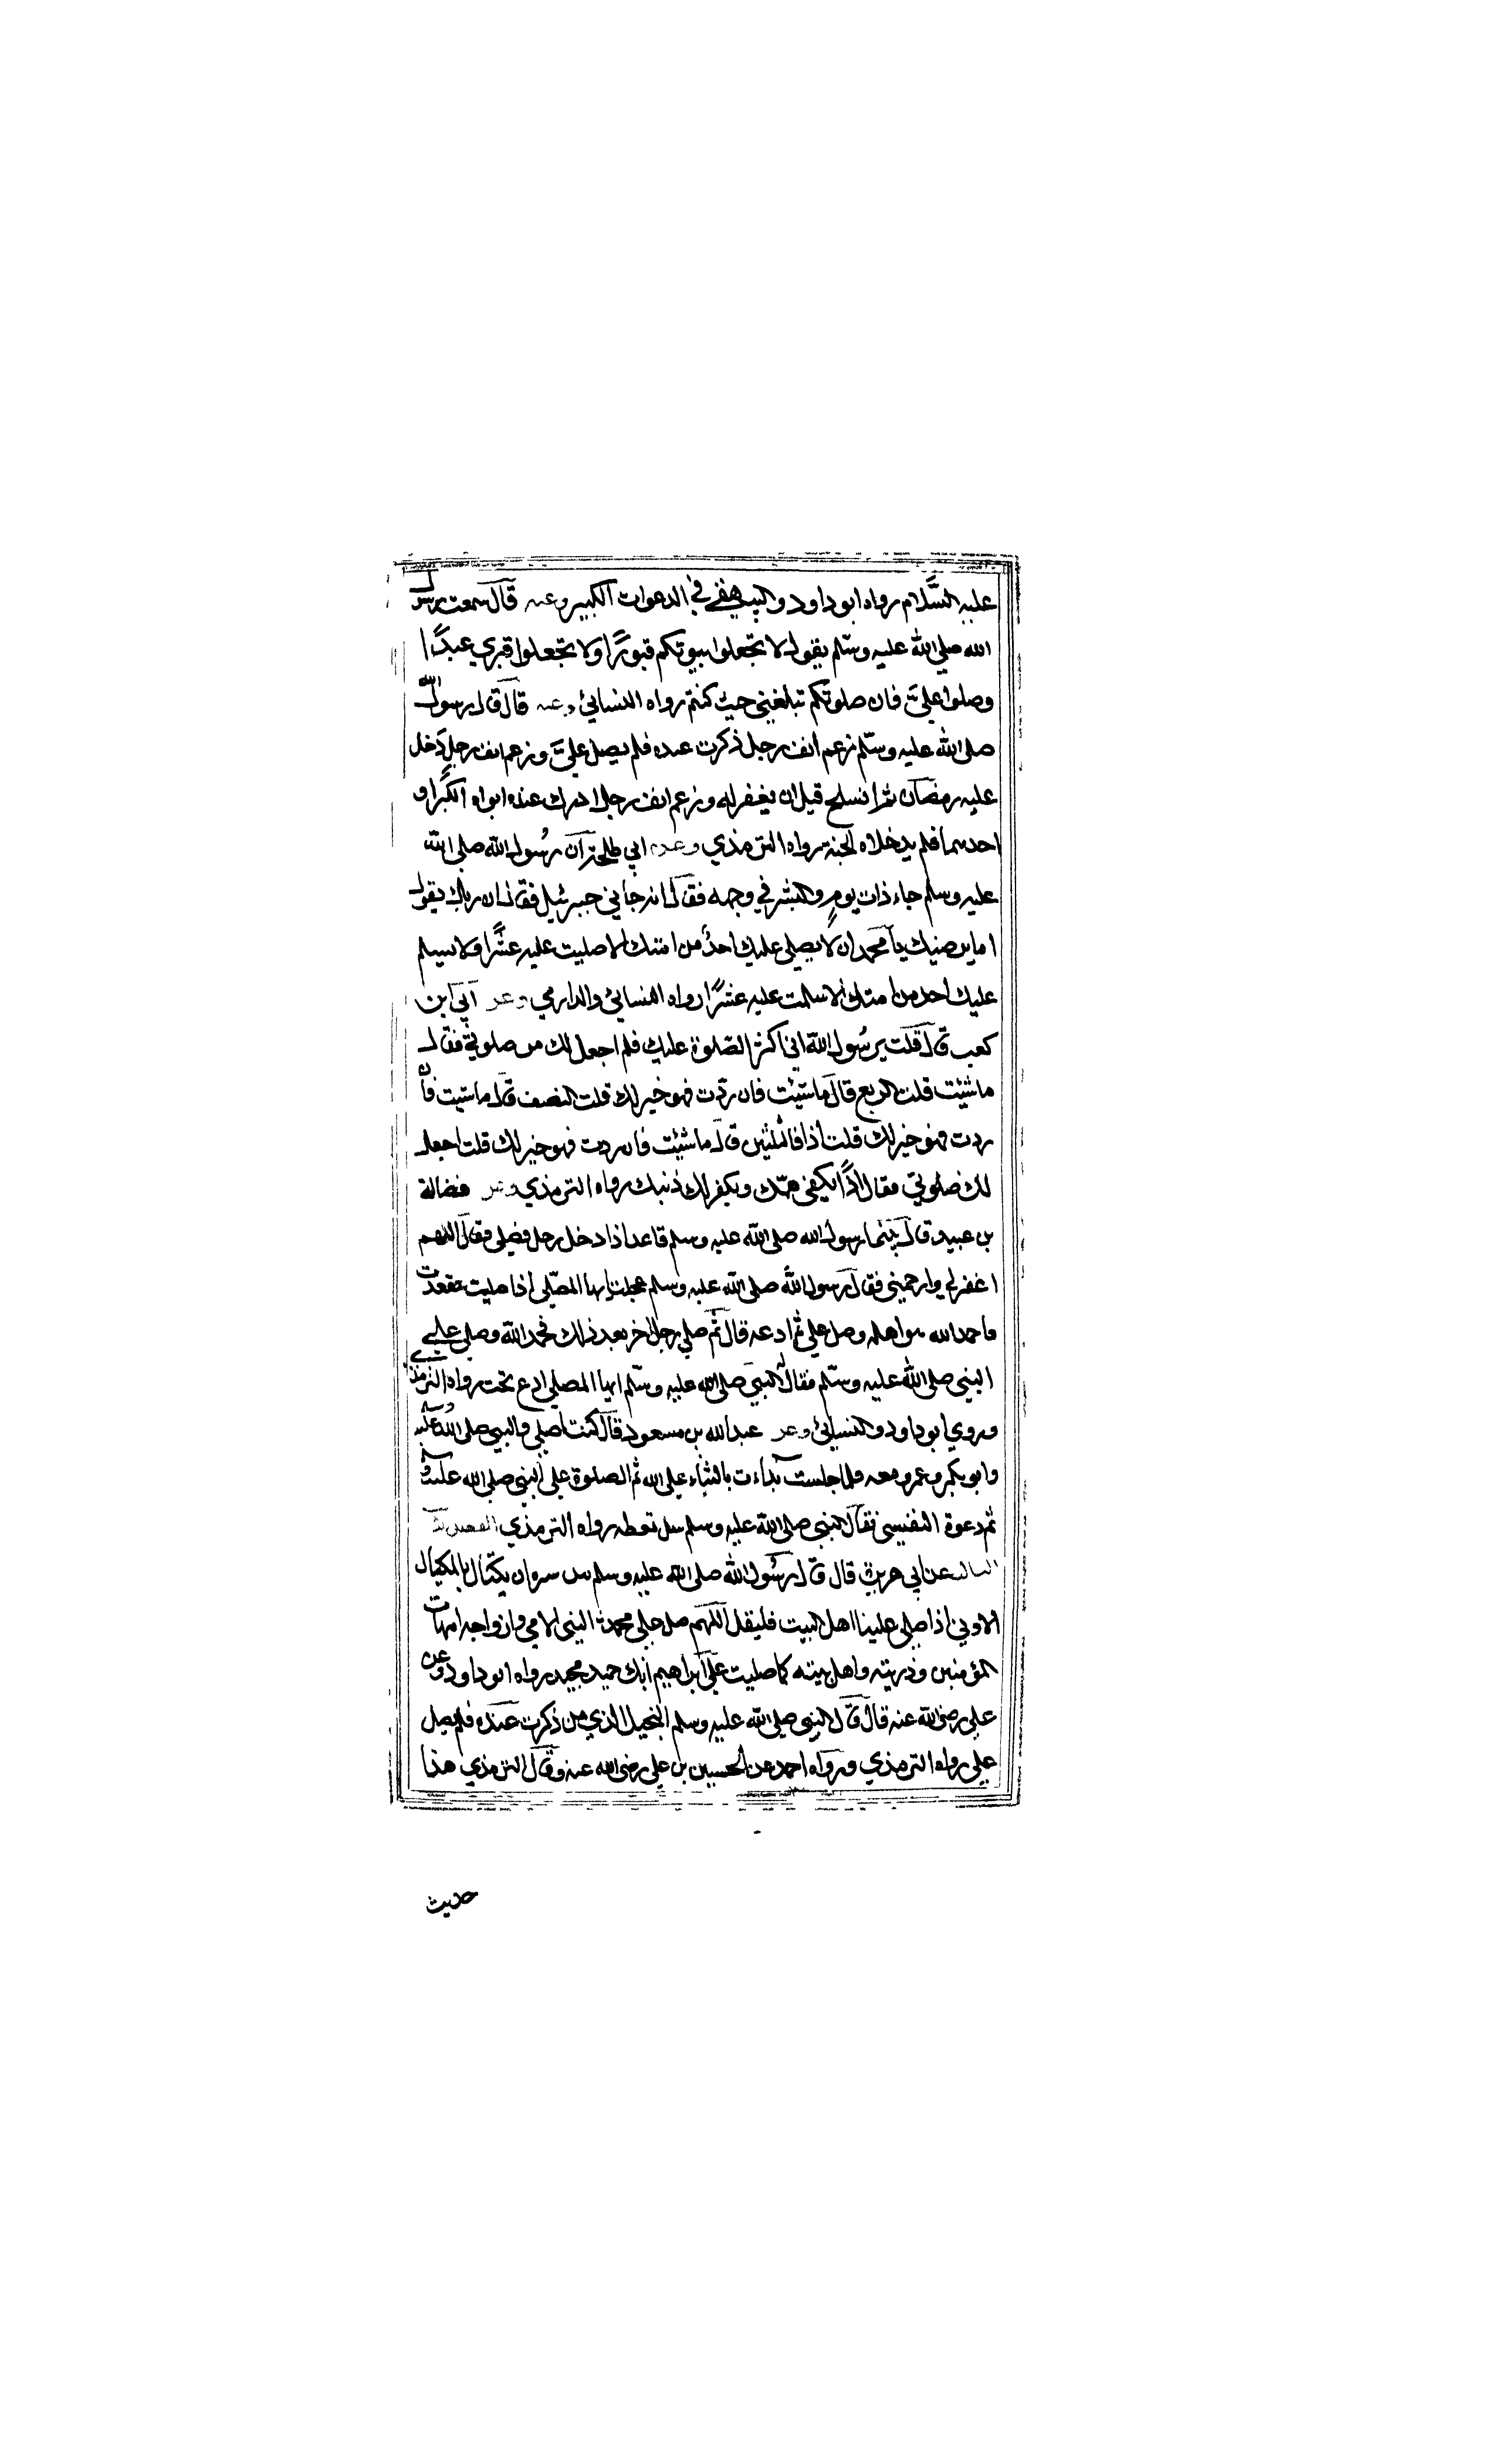 عليه السَّلام رواه ابو داود والبيهقي في الدعوات الكبير وعنه قال سمعت رسول
الله صلى الله عليه وسلم يقول لا تجعلوا بيوتكم قبورًا ولا تجعلوا قبري عيدًا
وصلوا عليّ فان صلوتكم تبلغني حيث كنتم رواه النسائي وعنه قال قال رسول الله
صلى الله عليه وسلم رغم انف رجل ذكرت عنده فلم يصل عليّ ورغم انف رجل دخل
عليه رمضان ثم انسلخ قبل ان يغفر له ورغم انف رجل ادرك عنده ابواه الكبر او
احدهما فلم يدخلاه الجنة رواه الترمذي وعن ابي طلحة ان رسُول الله صلى الله
عليه وسلم جاء ذات يوم والبشر في وجهه فقال انه جاءني جبرئيل فقال ان ربك يقول
اما يرضيك يا محمد ان لا يصلي عليك احدٌ من امتك الا صليت عليه عشرًا ولا يسلم
عليك احد من امتك الا سلمت عليه عشرًا رواه النسائي والدارمي وعن ابي ابن
كعب قال قلت يرسُول الله اني اكثر الصلوة عليك فلم اجعل لك من صلوتي فقال
ما شئيت قلت الربع قال ما شئيت فان زدت فهو خير لك قلت النصف قال ما شيت فان
زدت فهو خير لك قلت اذا فالثلثين قال ما شئيت فان زدت فهو خير لك قلت اجعل
لك صلوتي فقال اذًا يكفي همّك ويكفر لك ذنبك رواه الترمذي وعن فضالة
بن عبيد قال بينما رسول الله صلى الله عليه وسلم قاعد اذا دخل رجل فصلى فقال اللهم
اغفر لي وارحمني فقال رسول الله صلى الله عليه وسلم عجلت ايها المصلي اذا صليت فقعدت
فاحمد الله بما هو اهله وصل علي ثم ادعه قال ثم صلى رجل اخر بعد ذلك فحمد الله وصلى على
النبي صلى الله عليه وسلم فقال له النبي صلى الله عليه وسلم ايها المصلي ادع تجب رواه الترمذي
وروي ابو داود والنسائي وعن عبد الله بن مسعود قال كنت اصلي والنبي صلى الله عليه وسلم
وابو بكر وعمر معه فلما جلست بداءت بالثناء على الله ثم الصلوة على النبي صلى الله عليه وسلم
ثم دعوة لنفسي فقال النبي صلى الله عليه وسلم سل تعطه رواه الترمذي الفصل
الثالث عن ابي هريرة قال قال رسُول الله صلى الله عليه وسلم من سره ان يكتال بالمكيال
الاوفى اذا صلى علينا اهل البيت فليقل اللهم صل على محمد النبي الامي وازواجه امهات
المؤمنين وذريته واهل بيته كما صليت على ابراهيم انك حميد مجيد رواه ابو داود وعن
علي رضى الله عنه قال قال النبي صلى الله عليه وسلم البخيل الذي من ذكرت عنده فلم يصل
علي رواه الترمذي ورواه احمد عن الحسين بن علي رضى الله عنه وقال الترمذي هذا
حديث